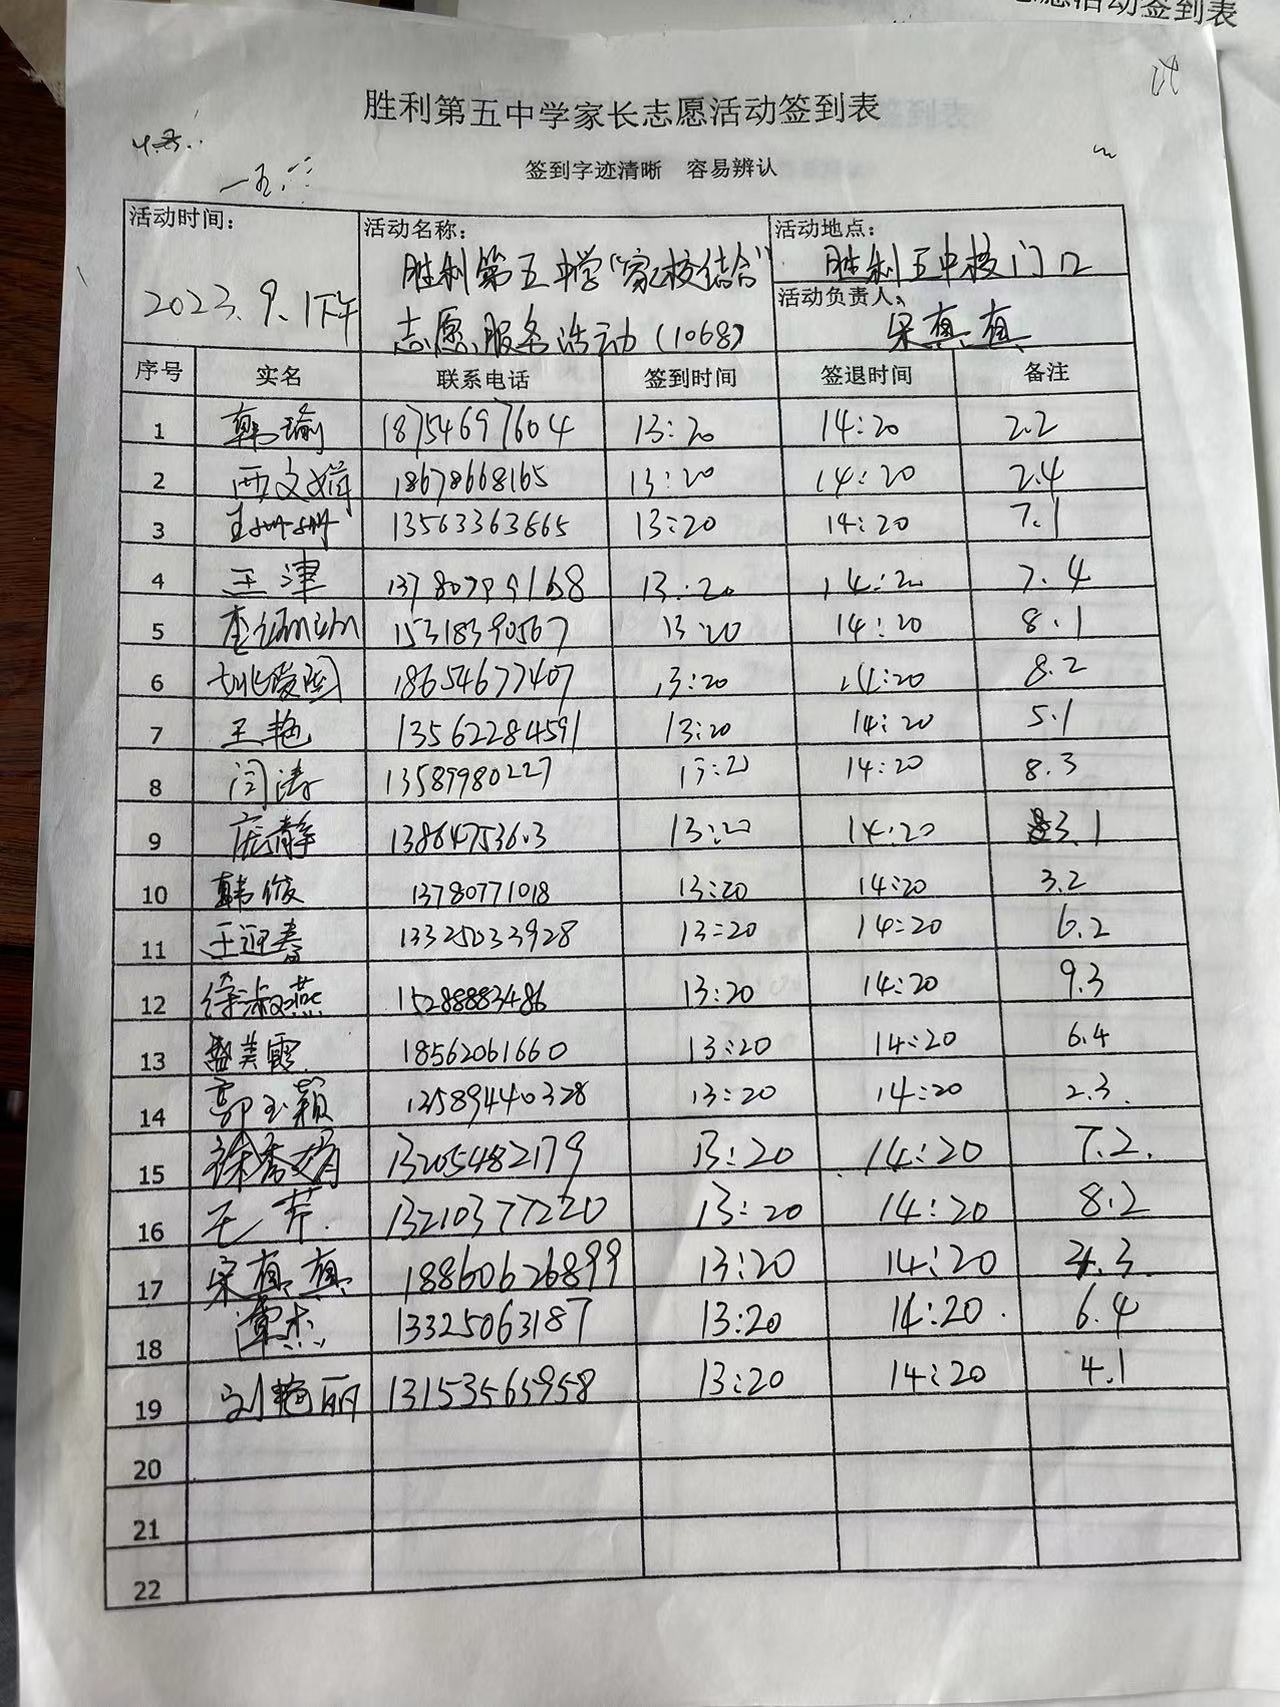 愿活动签到表
胜利第五中学家长志愿活动签到表
签到字迹清晰 容易辨认
活动时间: 2023.9.1下午
活动名称: 胜利第五中学“家校结合”
志愿服务活动(1068)
活动地点: 胜利五中校门口
活动负责人: 宋真真
序号 实名 联系电话 签到时间 签退时间 备注
1 韩瑜 18754697604 13:20 14:20 2.2
2 西文娟 18678668165 13:20 14:20 2.4
3 王姗姗 13563363665 13:20 14:20 7.1
4 王津 13780799168 13:20 14:20 7.4
5 15318390567 13:20 14:20 8.1
6 18654677407 13:20 14:20 8.2
7 王艳 13562284591 13:20 14:20 5.1
8 闫涛 13589980227 13:20 14:20 8.3
9 庞静 13864753603 13:20 14:20 3.1
10 韩俊 13780771018 13:20 14:20 3.2
11 王迎春 13325033928 13:20 14:20 6.2
12 徐淑燕 15288883486 13:20 14:20 9.3
13 盛美霞 18562061660 13:20 14:20 6.4
14 郭玉颖 125894440328 13:20 14:20 2.3.
15 徐秀娟 13205482179 13:20 14:20 7.2.
16 王芹. 13210377220 13:20 14:20 8.2
17 宋真真 18860626899 13:20 14:20 4.3.
18 覃杰 13325063187 13:20 14:20. 6.4
19 刘艳丽 13153565958 13:20 14:20 4.1
20
21
22